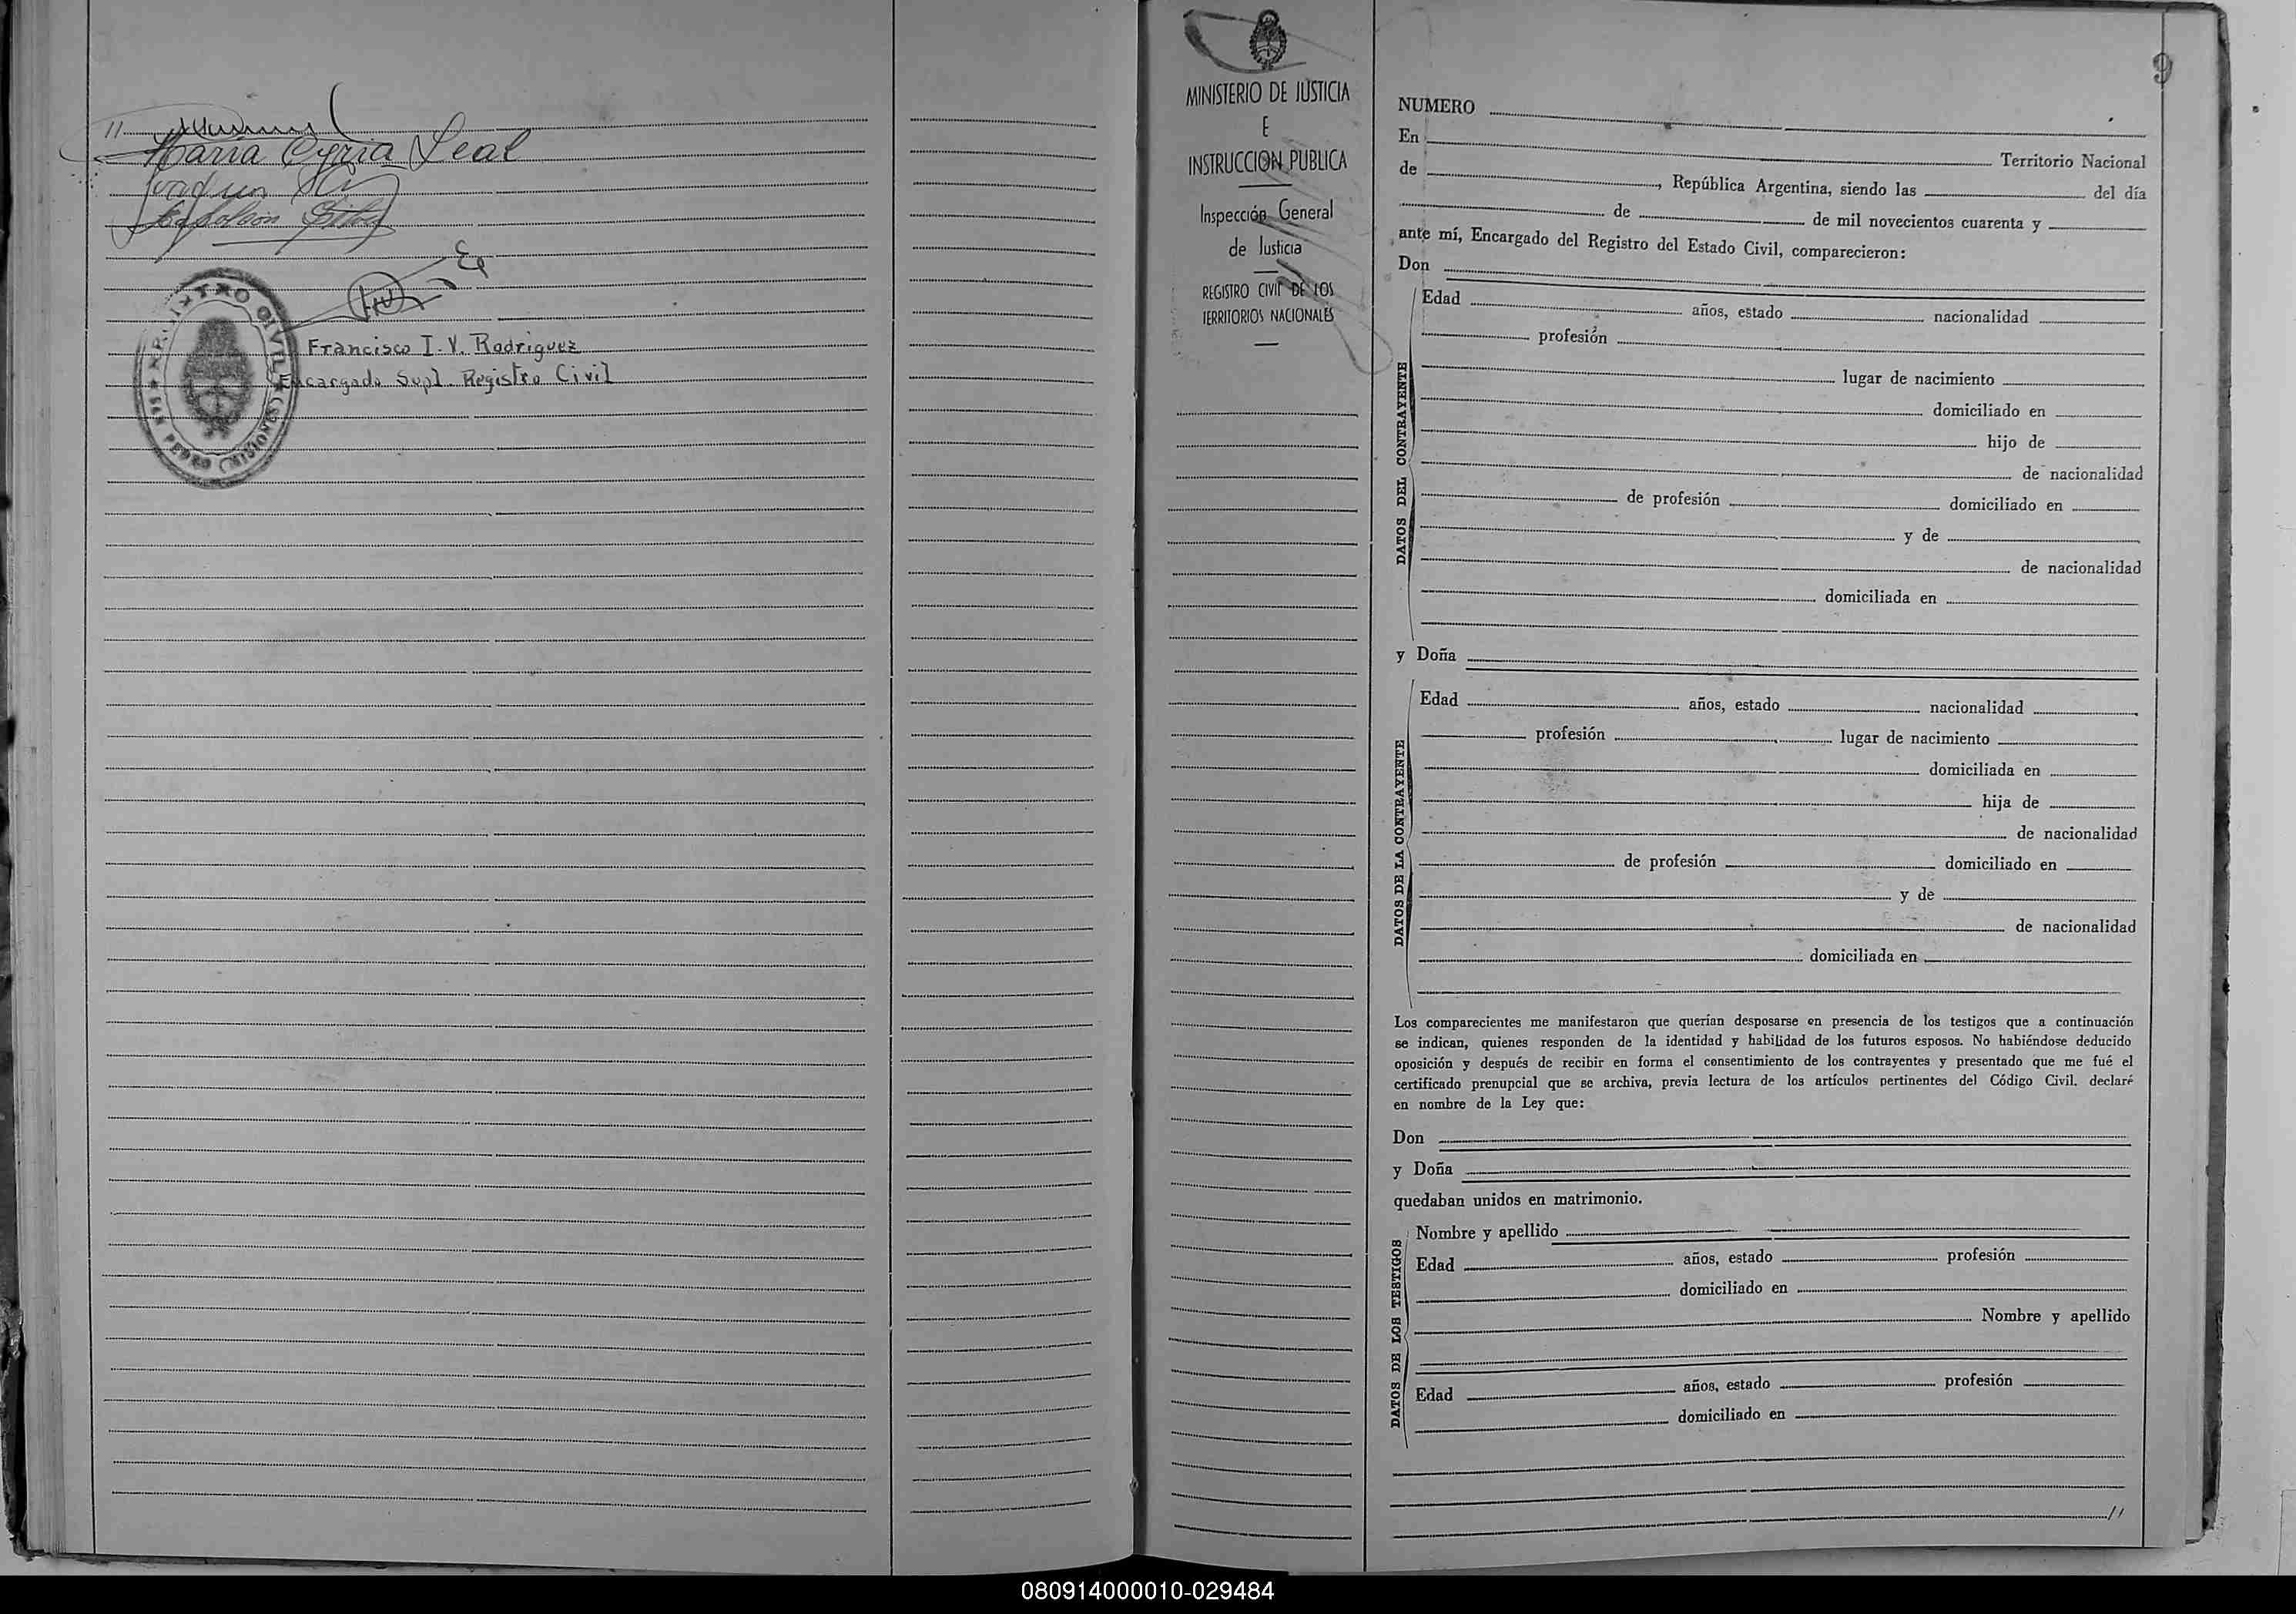 //
Maria Cyria Leal
Francisco I. V. Rodriguez
Encargado Supl. Registro Civil
REGISTRO CIVIL
SAN PEDRO (MISIONES)
MINISTERIO DE JUSTICIA
E
INSTRUCCION PUBLICA
Inspección General
de Justicia
REGISTRO CIVIL DE LOS
TERRITORIOS NACIONALES
9
NUMERO
En Territorio Nacional
de , República Argentina, siendo las del día
de de mil novecientos cuarenta y
ante mí, Encargado del Registro del Estado Civil, comparecieron:
Don
DATOS DEL CONTRAYENTE
Edad años, estado nacionalidad
profesión
lugar de nacimiento
domiciliado en
hijo de
de nacionalidad
de profesión domiciliado en
y de
de nacionalidad
domiciliada en
y Doña
DATOS DE LA CONTRAYENTE
Edad años, estado nacionalidad
profesión lugar de nacimiento
domiciliada en
hija de
de nacionalidad
de profesión domiciliado en
y de
de nacionalidad
domiciliada en
Los comparecientes me manifestaron que querían desposarse en presencia de los testigos que a continuación
se indican, quienes responden de la identidad y habilidad de los futuros esposos. No habiéndose deducido
oposición y después de recibir en forma el consentimiento de los contrayentes y presentado que me fué el
certificado prenupcial que se archiva, previa lectura de los artículos pertinentes del Código Civil. declaré
en nombre de la Ley que:
Don
y Doña
quedaban unidos en matrimonio.
DATOS DE LOS TESTIGOS
Nombre y apellido
Edad años, estado profesión
domiciliado en
Nombre y apellido
Edad años, estado profesión
domiciliado en
//
080914000010-029484